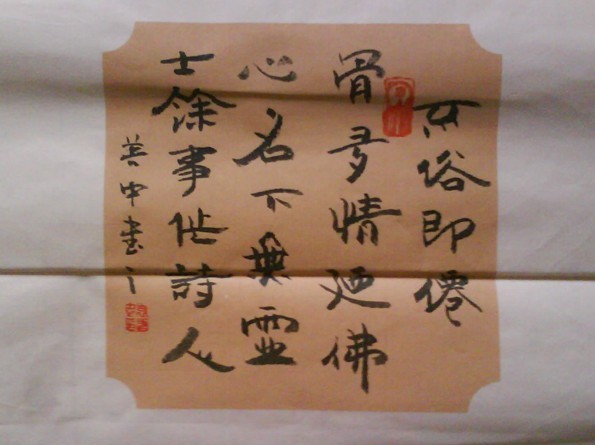 不俗即僊
骨多情廼佛
心名下無虛
士餘事作詩人
善中書之